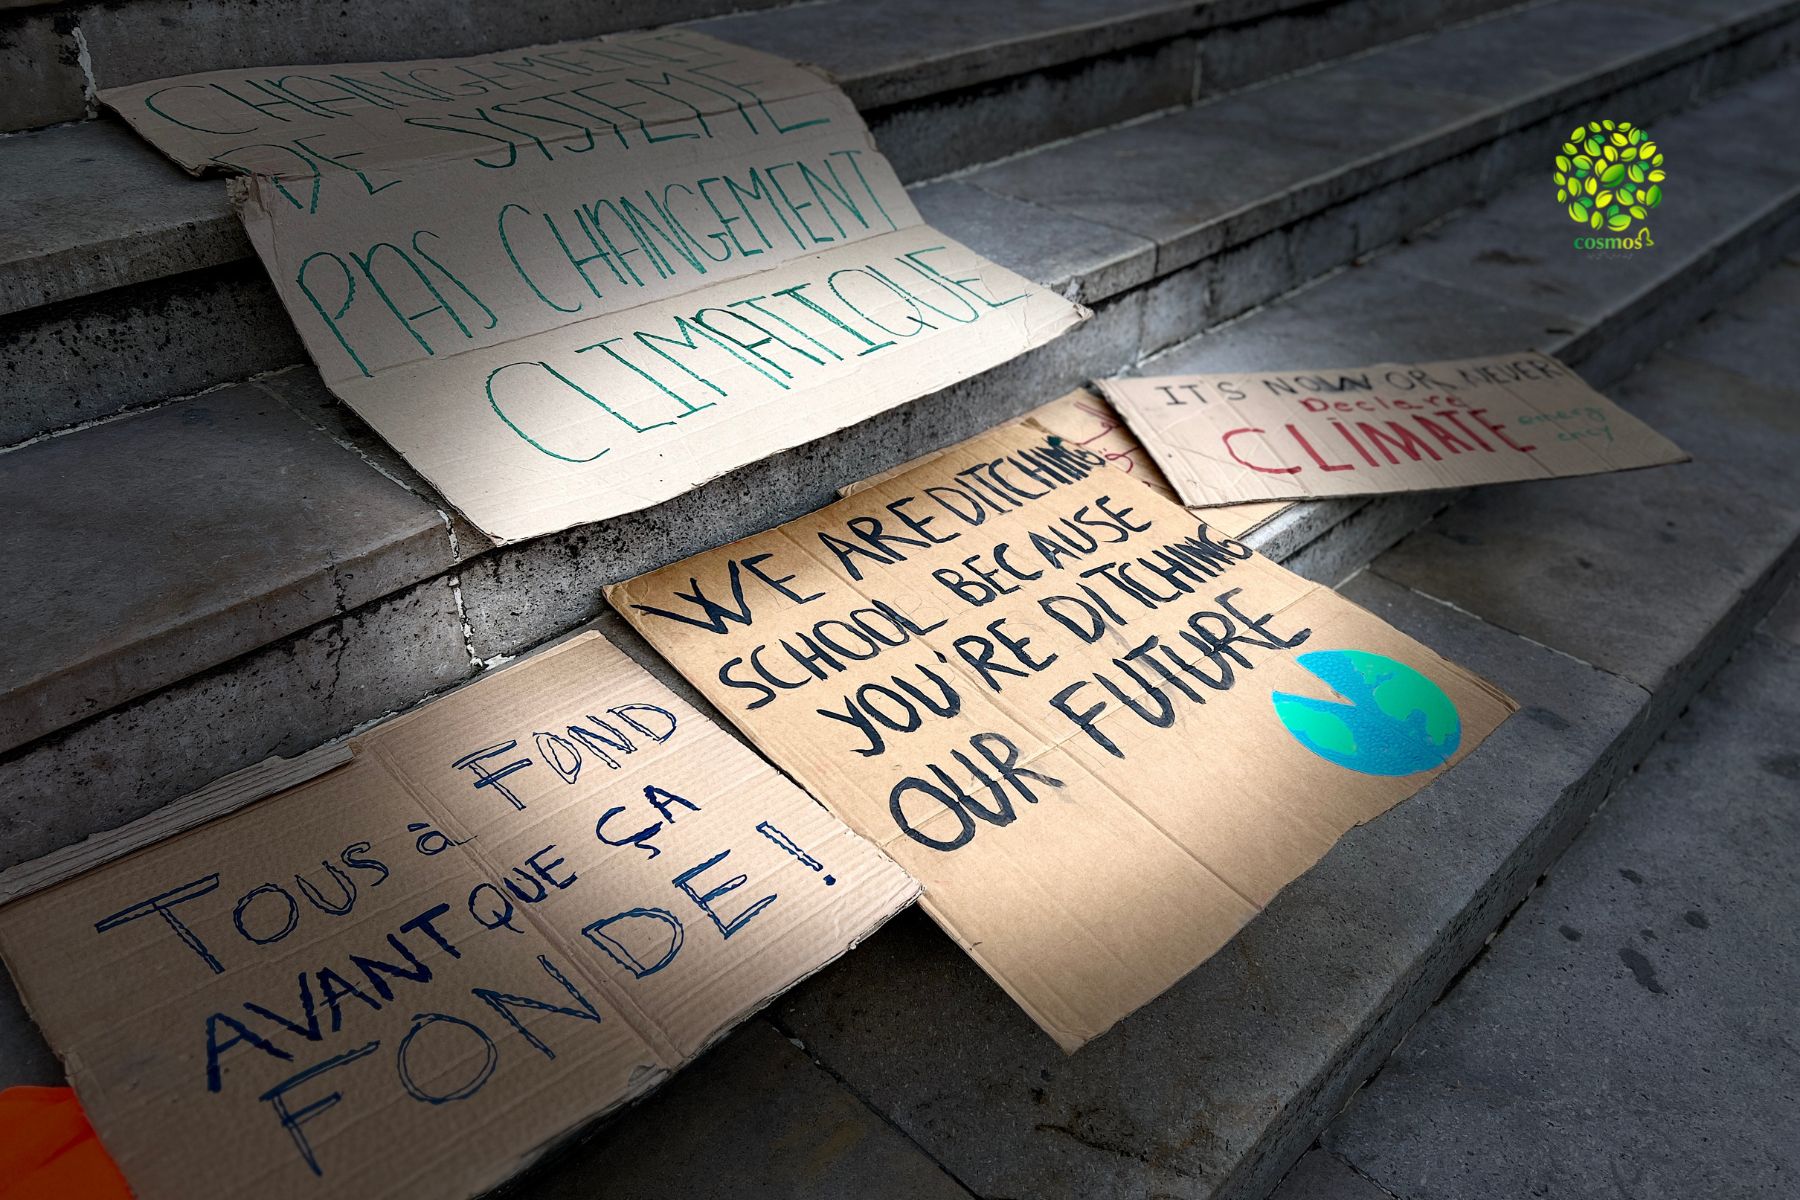 CHANGEMENT
DE SYSTEME
PAS CHANGEMENT
CLIMATIQUE
IT'S NOW OR NEVER!
Declare
CLIMATE emerg
ency
WE ARE DITCHING
SCHOOL BECAUSE
YOU'RE DITCHING
OUR FUTURE
TOUS à FOND
AVANT QUE ÇA
FONDE!
cosmos